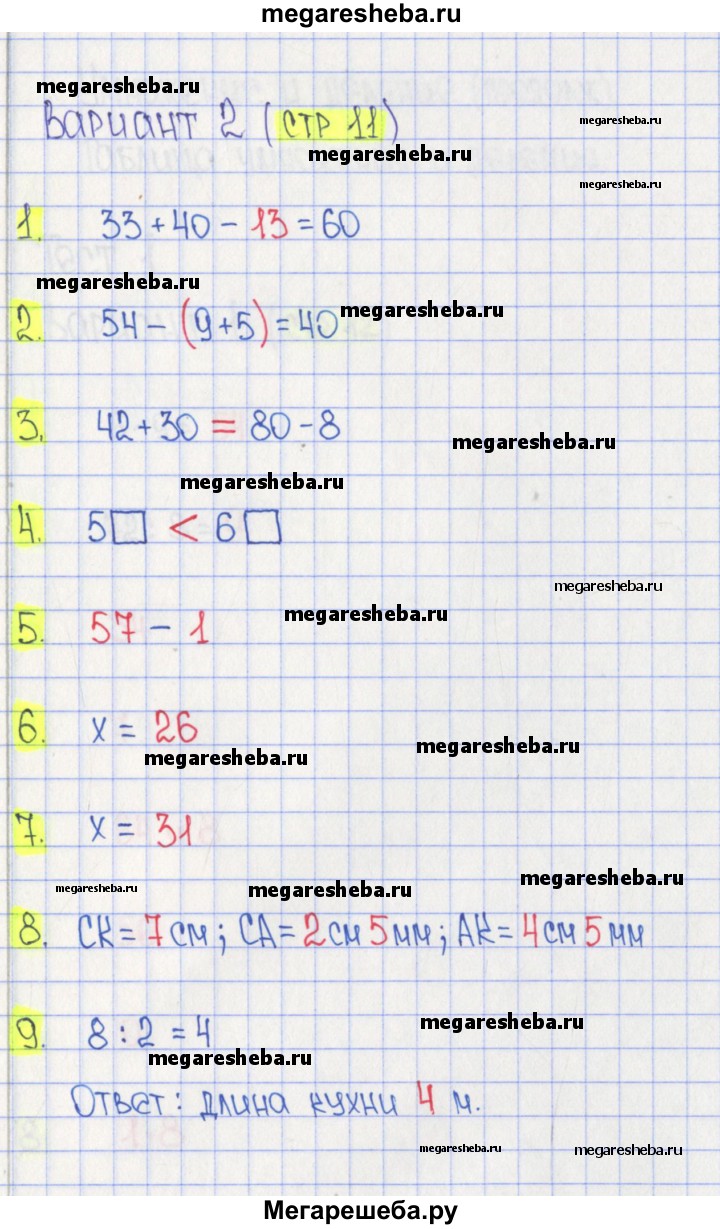 megaresheba.ru
megaresheba.ru
Вариант 2 (стр 11)
megaresheba.ru
megaresheba.ru
megaresheba.ru
1. 33 + 40 - 13 = 60
megaresheba.ru
megaresheba.ru
2. 54 - (9 + 5) = 40
3. 42 + 30 = 80 - 8
megaresheba.ru
megaresheba.ru
4. 5□ < 6□
megaresheba.ru
megaresheba.ru
5. 57 - 1
6. x = 26
megaresheba.ru
megaresheba.ru
7. x = 31
megaresheba.ru
megaresheba.ru
megaresheba.ru
8. СК = 7 см; СА = 2 см 5 мм; АК = 4 см 5 мм
9. 8 : 2 = 4
megaresheba.ru
megaresheba.ru
Ответ: длина кухни 4 м.
megaresheba.ru
megaresheba.ru
Мегарешеба.ру